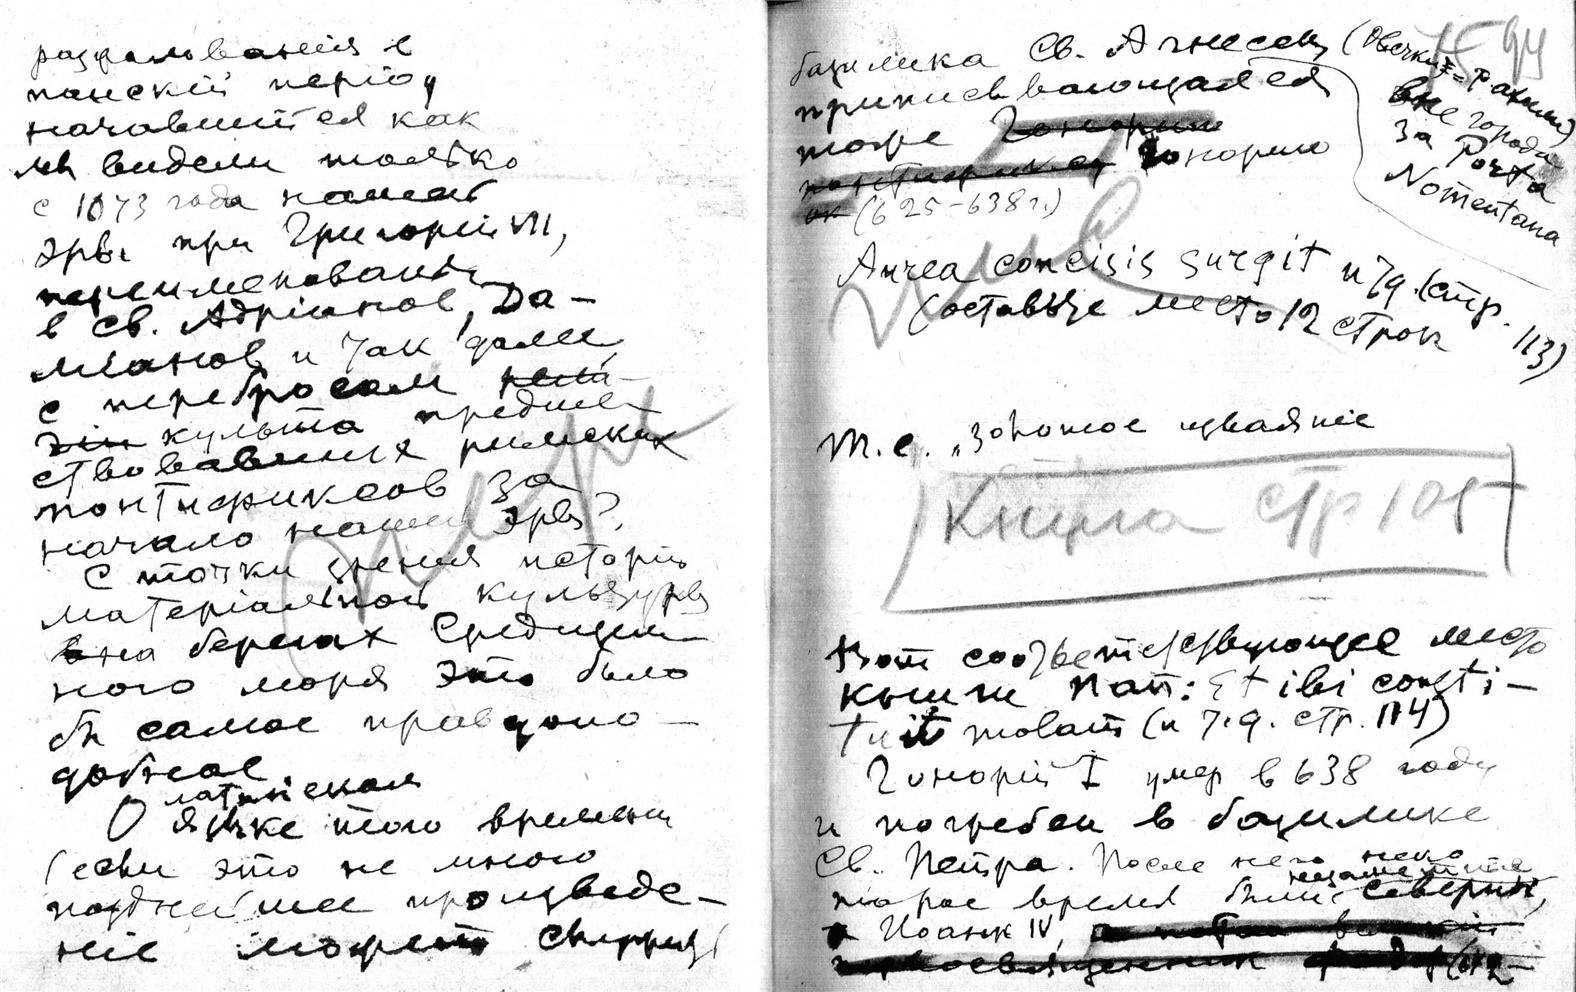 папскій період
начавшійся как
мы видели только
с 1073 года нашей
эры при Григоріи VII,
переименованы
в Св. Адріанов, Да-
міанов и так далее
с перебросом
культа предше-
ствовавших римских
понтификсов за
начало нашей эры?
С точки зрения исторіи
матеріальной культуры
на берегах Средизем-
ного моря это было
бы самое правдопо-
добное
О латинском
языке того времени
(если это не много
позднейшее произведе-
ніе может
75 94
базилика Св. Агнесы (Овечки =
вне города
за Porta
Nomentana
приписывающаяся
тоже Гонорию
(625-638 г.)
Aurea concisis surgit и т д. (стр. 113)
(оставьте место 12 строк
т.е. „Золотое изваяніе
Книга стр 105
Вот соответствующее место
книги Пап: Et ibi consti-
tuit molam (и т.д. стр. 114)
Гонорій I умер в 638 году
и погребен в базилике
Св. Петра. После него неко
торое время были незаметные Северин,
Иоанн IV,